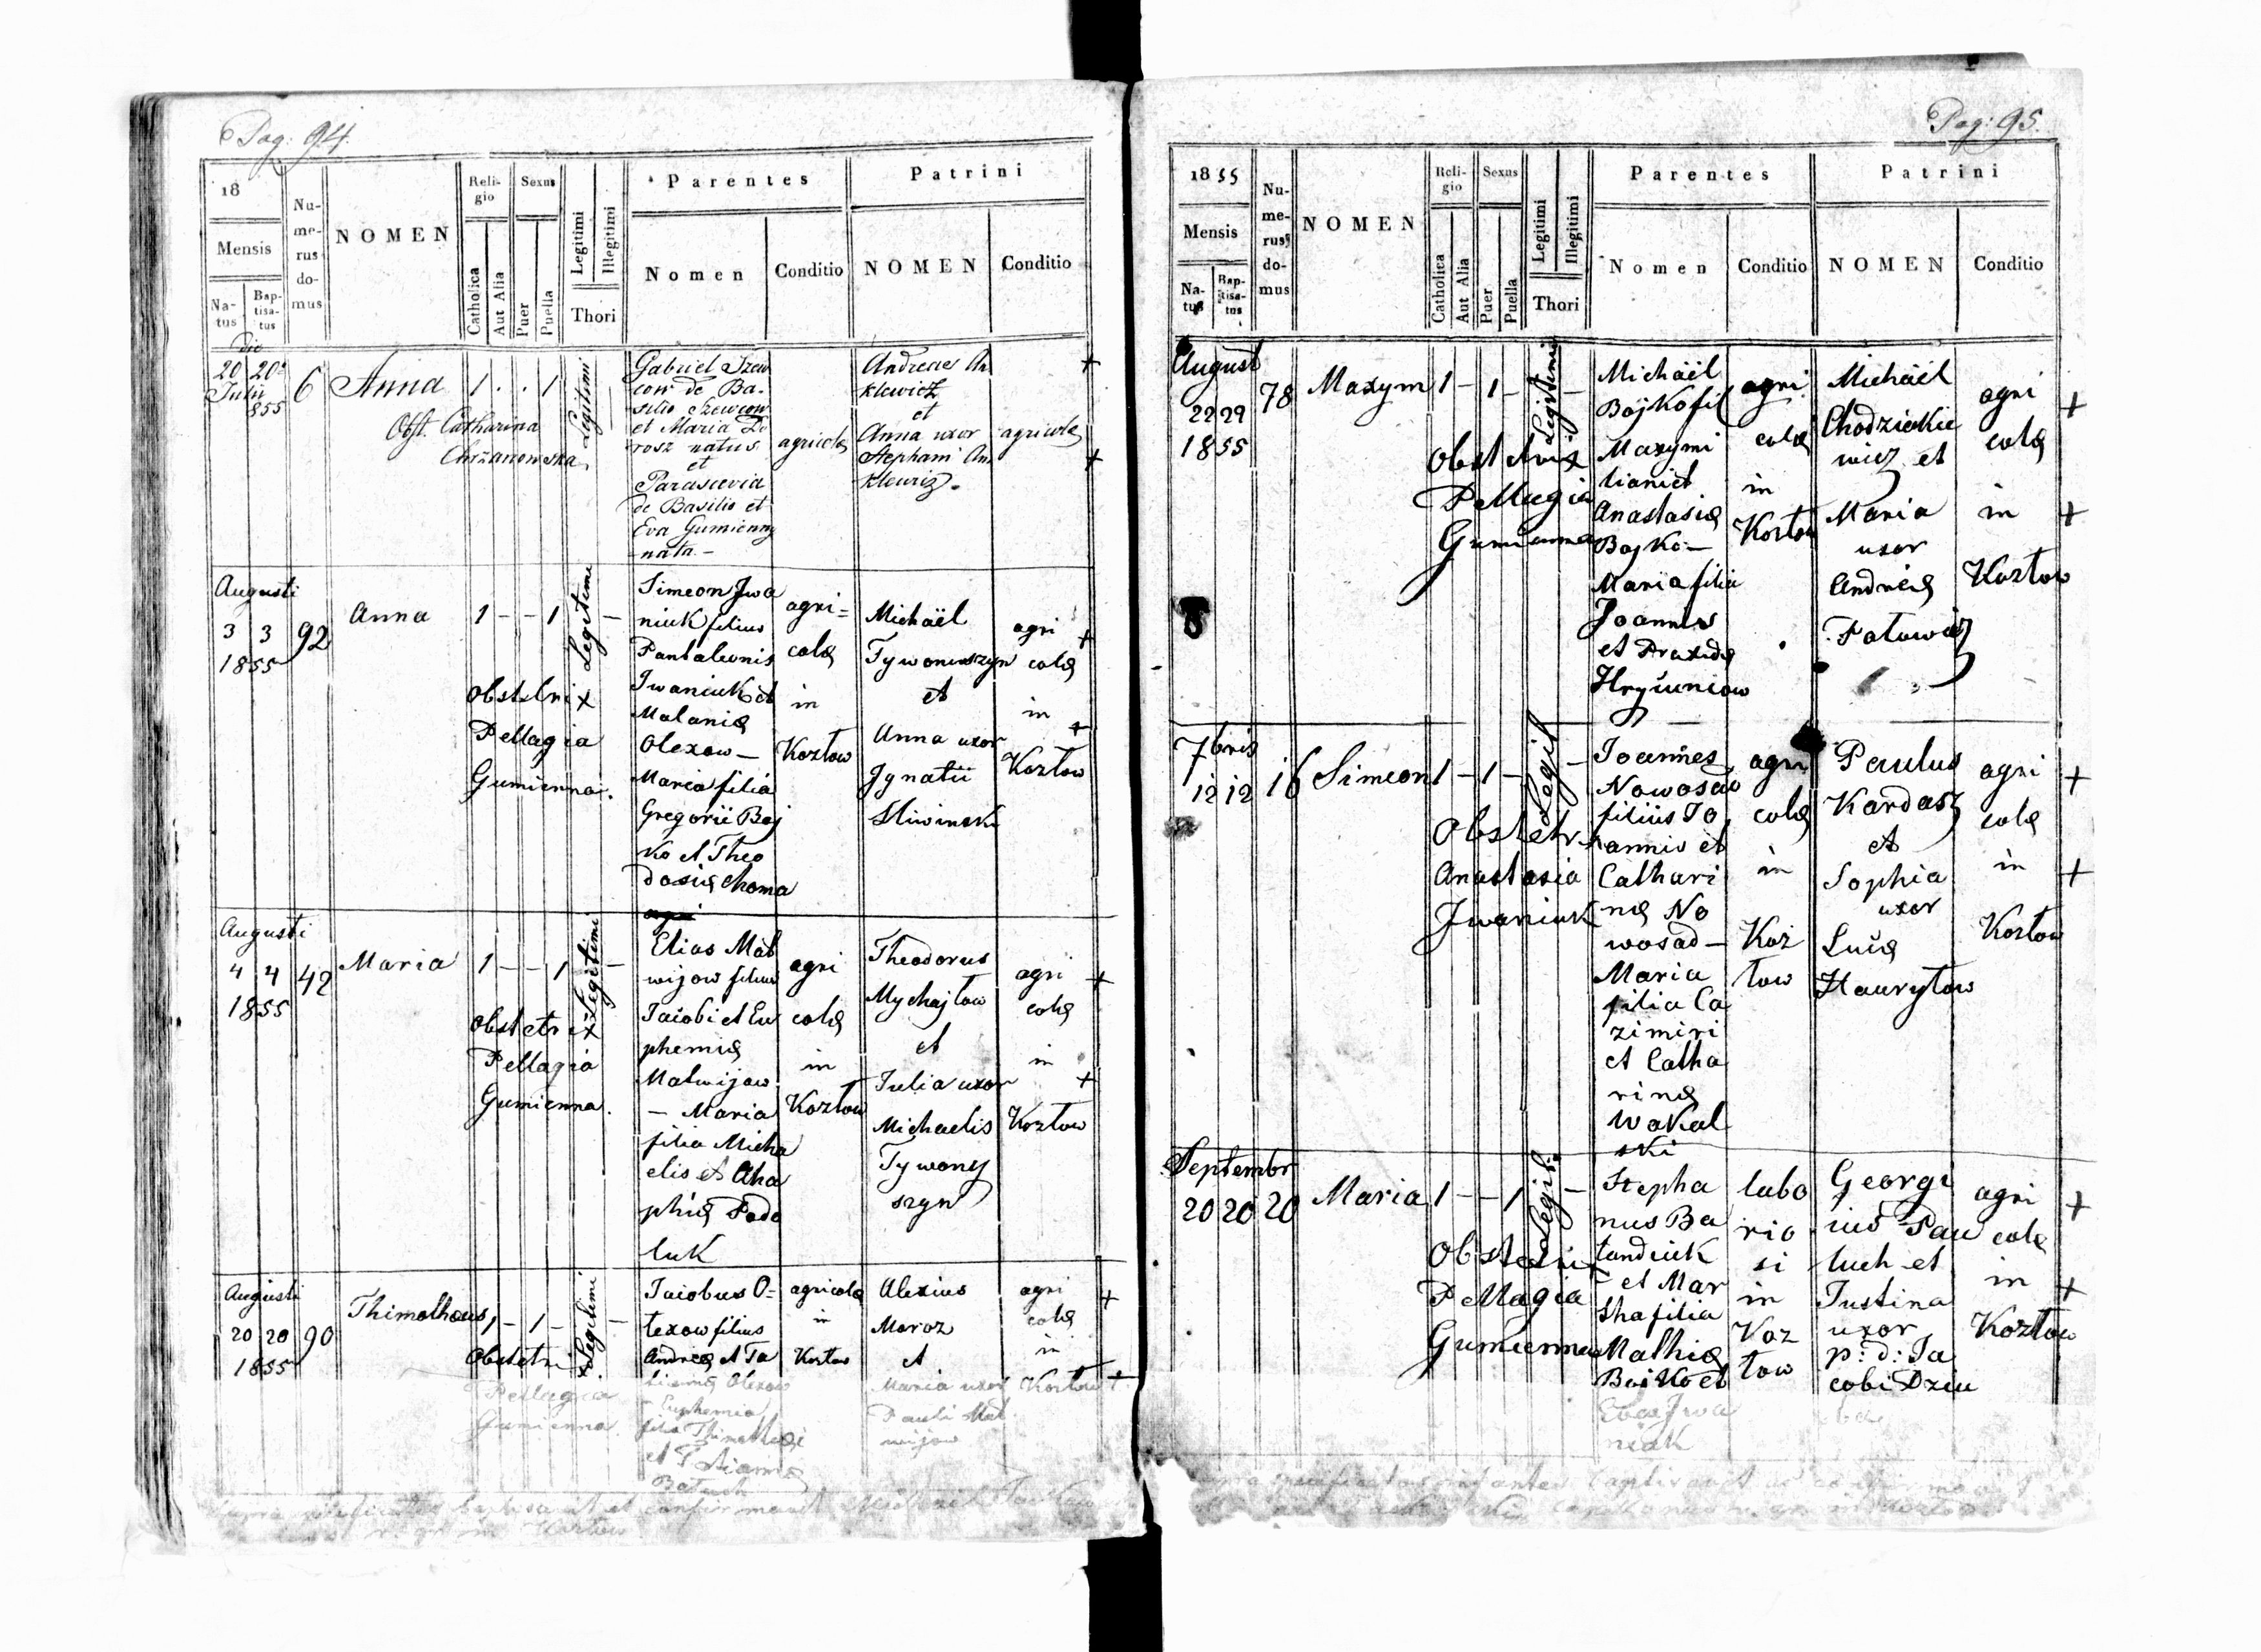 Pag: 94.
18
Mensis
Na-
tus
Bap-
tisa-
tus
Nu-
me-
rus
do-
mus
NOMEN
Reli-
gio
Catholica
Aut Alia
Sexus
Puer
Puella
Legitimi
Illegitimi
Thori
Parentes
Nomen
Conditio
Patrini
NOMEN
Conditio
die
20 20
Julii
855
6
Anna
1 . . 1
Legitimi
Obst. Catharina
Chrzanowska
Gabriel Szew
cow de Ba-
silio Szewcow
et Maria Do
rosz natus
et
Parascevia
de Basilio et
Eva Gumienny
nata.-
agricolę
Andreas An
klewicz
et
Anna uxor
Stephani An
klewicz.
agricolę
+
+
Augusti
3 3
1855
92
Anna
1 - - 1
Legitime
-
Obstetrix
Pellagia
Gumienna.
Simeon Jwa
niuk filius
Pantaleonis
Jwaniuk et
Malanię
Olexow -
Maria filia
Gregorii Boj
ko et Theo
dosię Choma
agri=
colę
in
Kozłow
Michaël
Tywoniuszyn
et
Anna uxor
Jgnatii
Sliwinski
agri
colę
in
Kozłow
+
+
Augusti
4 4
1855
42
Maria
1 - - 1
Legitimi
-
Obstetrix
Pellagia
Gumienna.
Elias Mat
wijow filius
Jacobi et Eu
phemię
Matwijow
- Maria
filia Micha
elis et Aha
phię Pado
luk
agri
colę
in
Kozłow
Theodorus
Mychajłow
et
Julia uxor
Michaelis
Tywony
szyn
agri
colę
in
Kozłow
+
+
Augusti
20 20
1855
90
Thimotheus
1 - 1 -
Legitimi
-
Obstetrix
Pellagia
Gumienna.
Jacobus O=
lexow filius
Andreę et Ta
tiannę Olexow
- Euphemia
filia Thimothei
et Tatiannę
agricolę
in
Kozłow
Alexius
Maroz
et
Maria uxor
Pauli Mat
wijow
agri
colę
in
Kozłow
+
+
baptisavit et confirmavit
Pag: 95.
1855
Mensis
Na-
tus
Bap-
tisa-
tus
Nu-
me-
rus
do-
mus
NOMEN
Reli-
gio
Catholica
Aut Alia
Sexus
Puer
Puella
Legitimi
Illegitimi
Thori
Parentes
Nomen
Conditio
Patrini
NOMEN
Conditio
August
22 29
1855
78
Maxym
1 - 1 -
Legitimi
-
Obstetrix
Pellagia
Gumienna
Michaël
Bojko fil
Maxymi
liani et
Anastasię
Bojko -
Maria filia
Joannis
et Praxidę
Hryciuniow
agri
colę
in
Kozłow
Michaël
Chodzickie
wicz et
Maria
uxor
Andreę
Fatowicz
agri
colę
in
Kozłow
+
+
7bris
12 12
16
Simeon
1 - 1 -
Legit
-
Obstetr
Anastasia
Jwaniuk
Joannes
Nowosad
filius Jo
annis et
Cathari
nę No
wosad -
Maria
filia Ca
zimiri
et Catha
rinę
Wakal
ski
agri
colę
in
Koz
łow
Paulus
Kardasz
et
Sophia
uxor
Lucę
Hawryłow
agri
colę
in
Kozłow
+
+
Septembr
20 20
20
Maria
1 - - 1
Legit.
-
Obstetrix
Pellagia
Gumienna
Stepha
nus Ba
tandiuk
et Mar
tha filia
Mathię
Bojko et
Jwa
niak
labo
rio
si
in
Koz
łow
Georgi
ius Pau
luch et
Justina
uxor
p: d: Ja
cobi Dziu
agri
colę
in
Kozłow
+
+